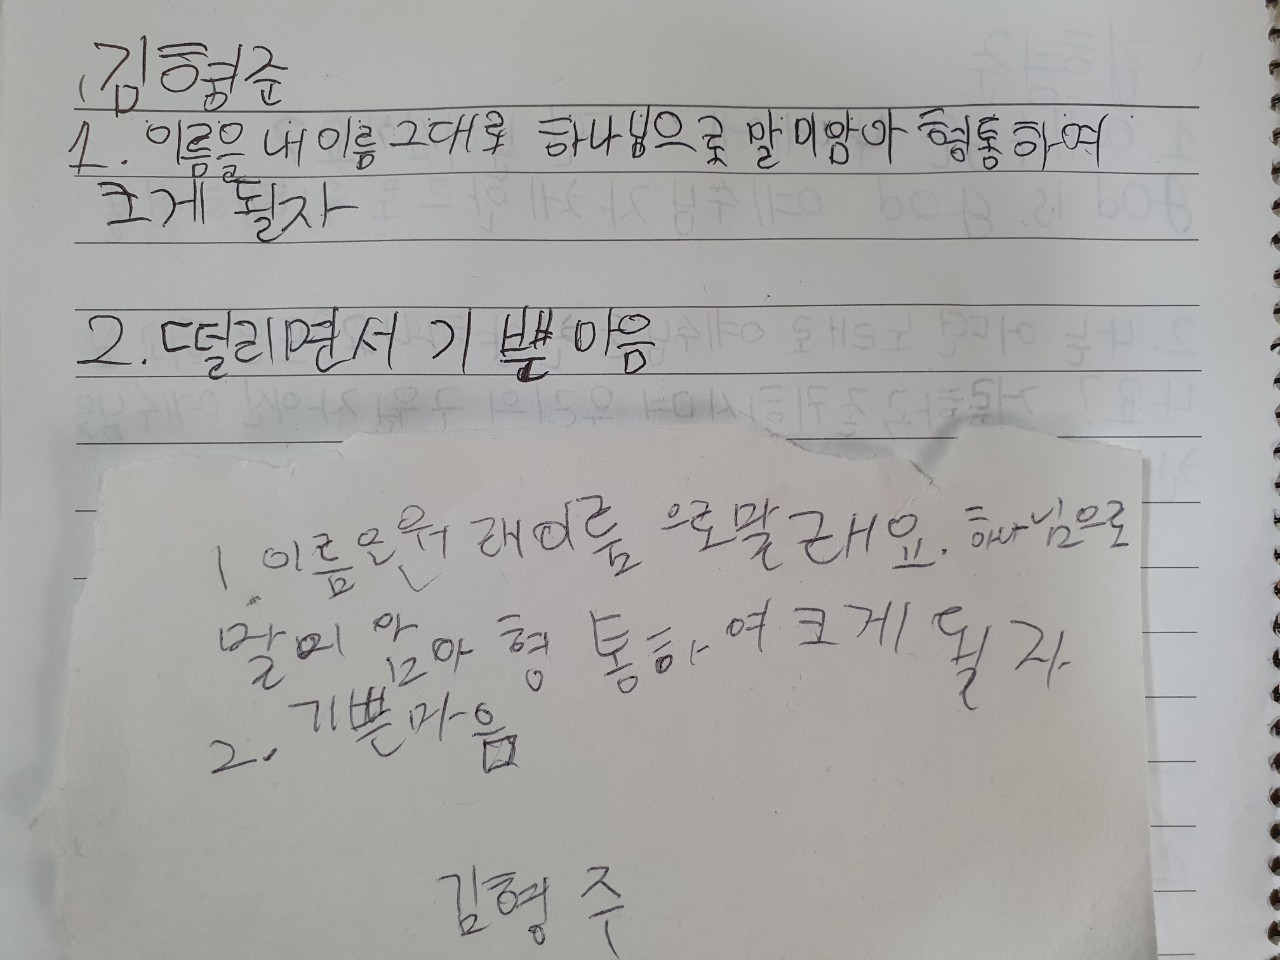 김형준
1. 이름을 내 이름 그대로 하나님으로 말미암아 형통하여
크게 될자
2. 떨리면서 기쁜 마음
1. 이름은 원래이름 으로말래요. 하나님으로
말미암아 형통하여 크게 될 자
2. 기쁜마음
김형주